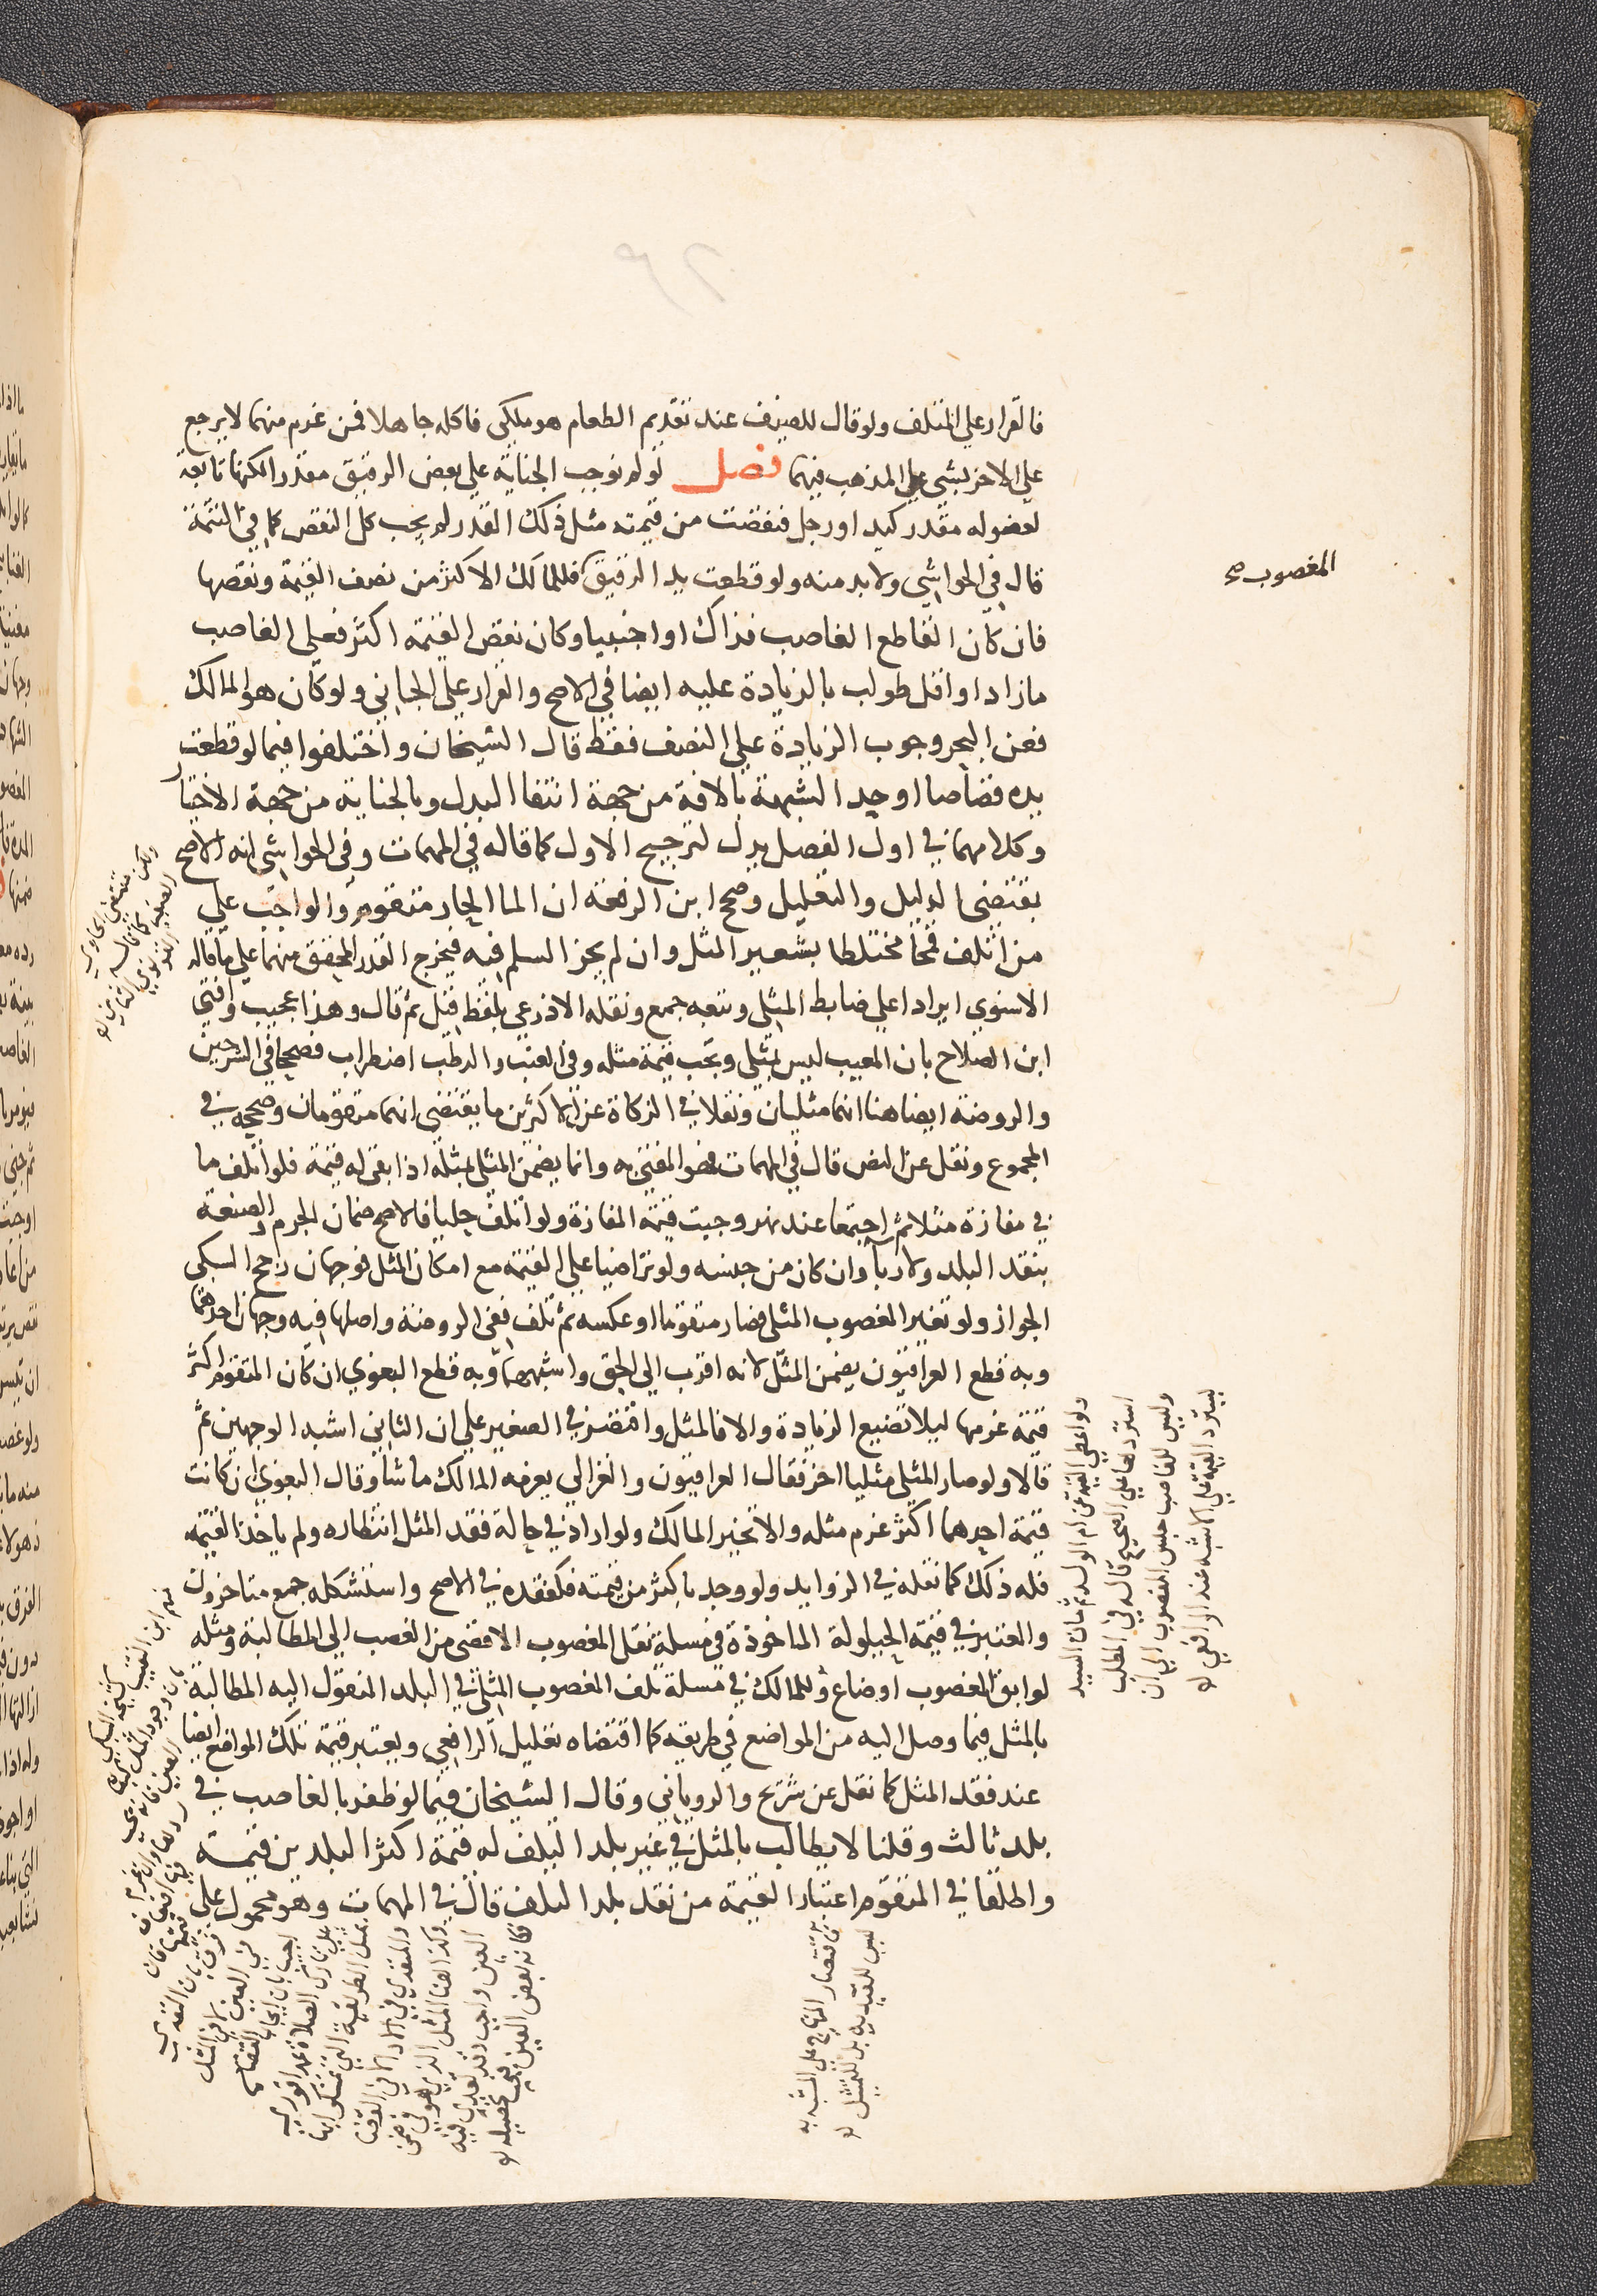 فالقرار علي المتلف ولو قال للضيف عند تقديم الطعام هو ملكي فاكله جاهلا فمن غرم منهما لا يرجع
علي الاخر بشي علي المذهب فيهما فصل لو لم توجب الجناية علي بعض الرقيق مقدرا لكونها تابعة
لعضو له مقدر كيد او رجل فنقصت من قيمته مثل ذلك القدر لم يجب كل النقص كما في التتمة
قال في الحواشي ولا بد منه ولو قطعت يد الرقيق فللمالك الاكثر من نصف القيمة ونقصها
المغصوب صح
فان كان القاطع الغاصب فذاك او اجنبيا وكان نقص القيمة اكثر فعلي الغاصب
ما زاد او اقل طولب بالزيادة عليه ايضا في الاصح والقرار علي الجاني ولو كان هو المالك
فعن البحر وجوب الزيادة علي النصف فقط قال الشيخان واختلفوا فيما لو قطعت
يده قصاصا او حد الشبهة بالافة من جهة انتفا البدل وبالجناية من جهة الاختيار
وكلامهما في اول الفصل يدل لترجيح الاول كما قاله في المهمات وفي الحواشي انه الاصح
بمقتضي الدليل والتعليل وصحح ابن الرفعة ان الما الحار متقوم والواجب علي
من اتلف قمحا مختلطا بشعير المثل وان لم يجز السلم فيه فيخرج القدر المحقق منهما علي ما قاله
الاسنوي ايرادا علي ضابط المثلي وتبعه جمع ونقله الاذرعي بلفظ قيل ثم قال وهذا عجيب وافتي
ابن الصلاح بان المعيب ليس بمثلي وتجب قيمة مثله وفي العنب والرطب اضطراب فصححا في الشرحين
والروضة ايضا هنا انهما مثليان ونقلا في الزكاة عن الاكثرين ما يقتضي انهما متقومان وصححه في
المجموع ونقل عن النص قال في المهمات فهو المفتي به وانما يضمن المثلي بمثله اذا بقي له قيمة فلو اتلف ما
في مفازة مثلا ثم اجتمعا عند نهر وجبت قيمة المفازة ولو اتلف حليا فالاصح ضمان الجرم والصنعة
بنقد البلد ولا ربا وان كان من جنسه ولو تراضيا علي القيمة مع امكان المثل فوجهان رجح السبكي
الجواز ولو تغير المغصوب المثلي فصار متقوما او عكسه ثم تلف ففي الروضة واصلها فيه وجهان احدهما
وبه قطع العراقيون يضمن المثل لانه اقرب الي الحق واشبههما وبه قطع البغوي ان كان المتقوم اكثر
قيمة غرمها ليلا تضيع الزيادة والا فالمثل واقتصر في الصغير علي ان الثاني اشبه الوجهين ثم
قالا ولو صار المثلي مثليا اخر فقال العراقيون والغزالي يغرمه المالك ما شا وقال البغوي ان كانت
قيمة احدهما اكثر غرم مثله والا تخير المالك ولو اراد في حالة فقد المثل انتظاره ولم ياخذ القيمة
فله ذلك كما نقله في الزوايد ولو وجد باكثر من قيمته فكفقده في الاصح واستشكله جمع متاخرون
والمعتبر في قيمة الحيلولة الماخوذة في مسلة نقل المغصوب الاقصي من الغصب الي المطالبة ومثله
لو ابق المغصوب او ضاع وللمالك في مسلة تلف المغصوب المثلي في البلد المنقول اليه المطالبة
بالمثل فيما وصل اليه من المواضع في طريقه كما اقتضاه تعليل الرافعي ويعتبر قيمة تلك المواضع ايضا
عند فقد المثل كما نقل عن شريح والروياني وقال الشيخان فيما لو ظفر بالغاصب في
بلد ثالث وقلنا لا يطالب بالمثل في غير بلد التلف له قيمة اكثر البلدين قيمة
واطلقا في المتقوم اعتبار القيمة من نقد بلد التلف قال في المهمات وهو محمول علي
ولو اعطي القيمة عن ام الولد ثم مات السيد
استردها علي الصحيح قاله في المطلب
وليس للغاصب حبس المغصوب الي ان
يسترد القيمة علي الاشبه عند الرافعي